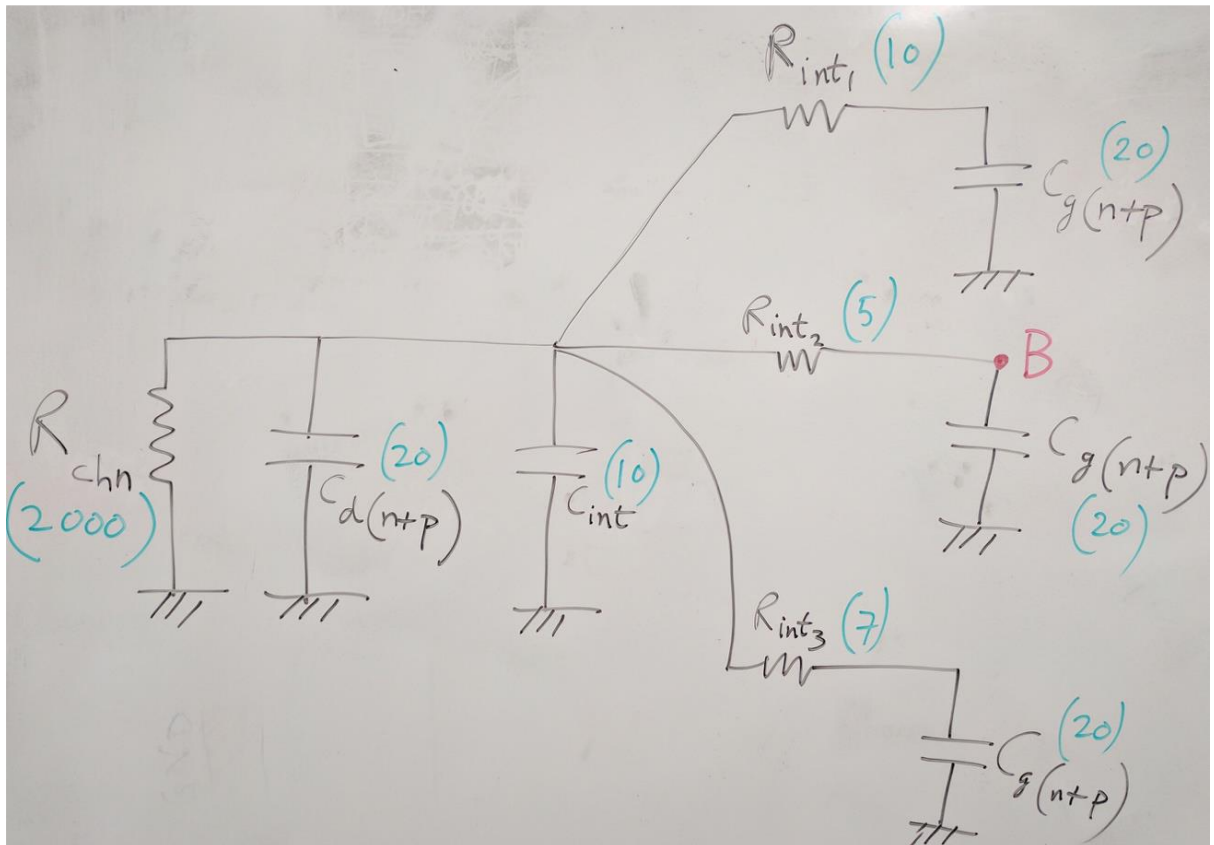 R_int₁ (10)
(20)
C_g(n+p)
R_int₂ (5)
B
C_g(n+p)
(20)
R_chn
(2000)
(20)
C_d(n+p)
(10)
C_int
R_int₃ (7)
(20)
C_g(n+p)